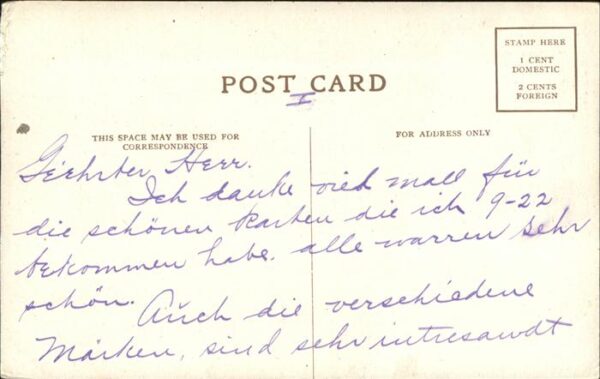 STAMP HERE
1 CENT
DOMESTIC
2 CENTS
FOREIGN
POST CARD
I
THIS SPACE MAY BE USED FOR
CORRESPONDENCE
FOR ADDRESS ONLY
Geehrter Herr.
Ich danke viel mall für
die schönen Karten die ich 9-22
bekommen habe. alle warren sehr
schön.
Auch die verschiedene
Marken, sind sehr intresandt